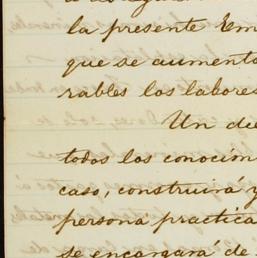 la presente Em
que se aumento
rables los labores
Un die
todos los conocim
caso, construirá y
persona practica
se encargará de